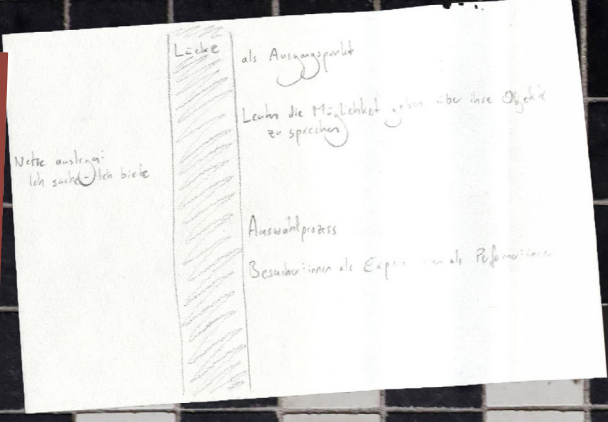 Lücke
als Ausgangspunkt
Leuten die Möglichkeit geben über ihre Objekte
zu sprechen
Netze auslegen:
Ich suche - Ich biete
Auswahlprozess
Besucher:innen als als Performer:innen